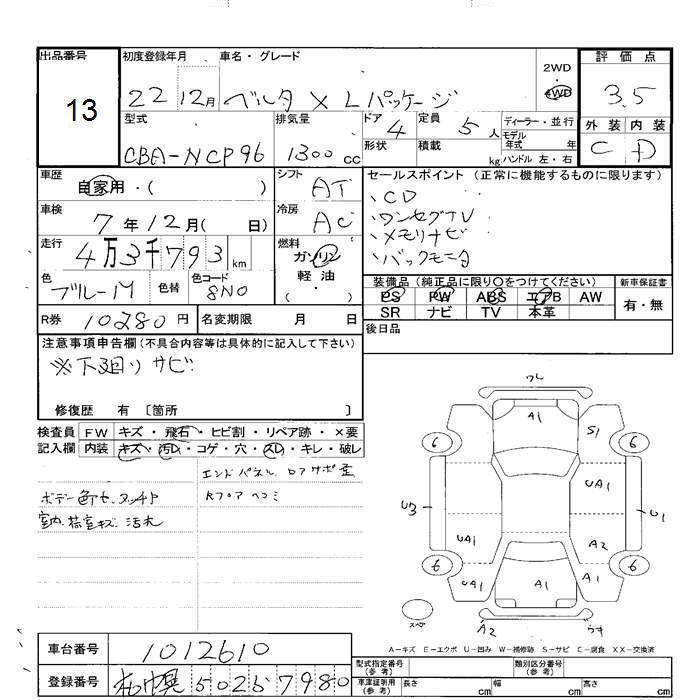 出品番号 初度登録年月 車名・グレード 2WD ・ 4WD 評価点
13 22 12月 ベルタ X Lパッケージ 3.5
型式 排気量 ドア 4 定員 5人 ディーラー・並行 外装 内装
モデル年式 年
CBA-NCP96 1300cc 形状 積載 kg ハンドル 左・右 C D
車歴 自家用・( ) シフト AT セールスポイント(正常に機能するものに限ります)
・CD
車検 7年12月( 日) 冷房 AC ・ワンセグTV
・メモリナビ
走行 4万3千793km 燃料 ガソリン ・バックモニタ
軽油
・( )
色 ブルーM 色替 色コード 8N0 装備品(純正品に限り○をつけてください) 新車保証書
PS PW ABS エアB AW 有・無
R券 10280円 名変期限 月 日 SR ナビ TV 本革
後日品
注意事項申告欄(不具合内容等は具体的に記入して下さい)
※下廻りサビ
修復歴 有 〔箇所 〕
検査員 FW キズ・飛石・ヒビ割・リペア跡・×要
記入欄 内装 キズ・汚レ・コゲ・穴・スレ・キレ・破レ
エンドパネル ロアサポ歪
ボデー色セ タッチP Rフロアヘコミ
室内 荷室キズ 汚れ
ワレ
A1
6 S1 6
UA1
U3 U1
UA1 A2
6 6
UA1 A1 A1
スペ A2 ウキ
A-キズ E-エクボ U-凹み W-補修跡 S-サビ C-腐食 XX-交換済
車台番号 1012610
型式指定番号(参考) 類別区分番号(参考)
登録番号 札幌 502 5 7980
車庫証明用(参考) 長さ cm 幅 cm 高さ cm